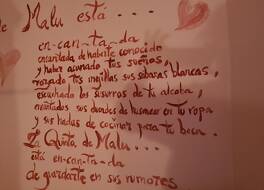 de Malu está . . .
en-can-ta-da.
encantada de haberte conocido
y haber acunado tus sueños,
rozado tus mejillas sus sábanas blancas,
escuchado los susurros de tu alcoba,
sus duendes de husmear en tu ropa
y sus hadas de cocinar para tu boca.
La Quinta de Malu . . .
está en-can-ta-da
de guardarte en sus rumores